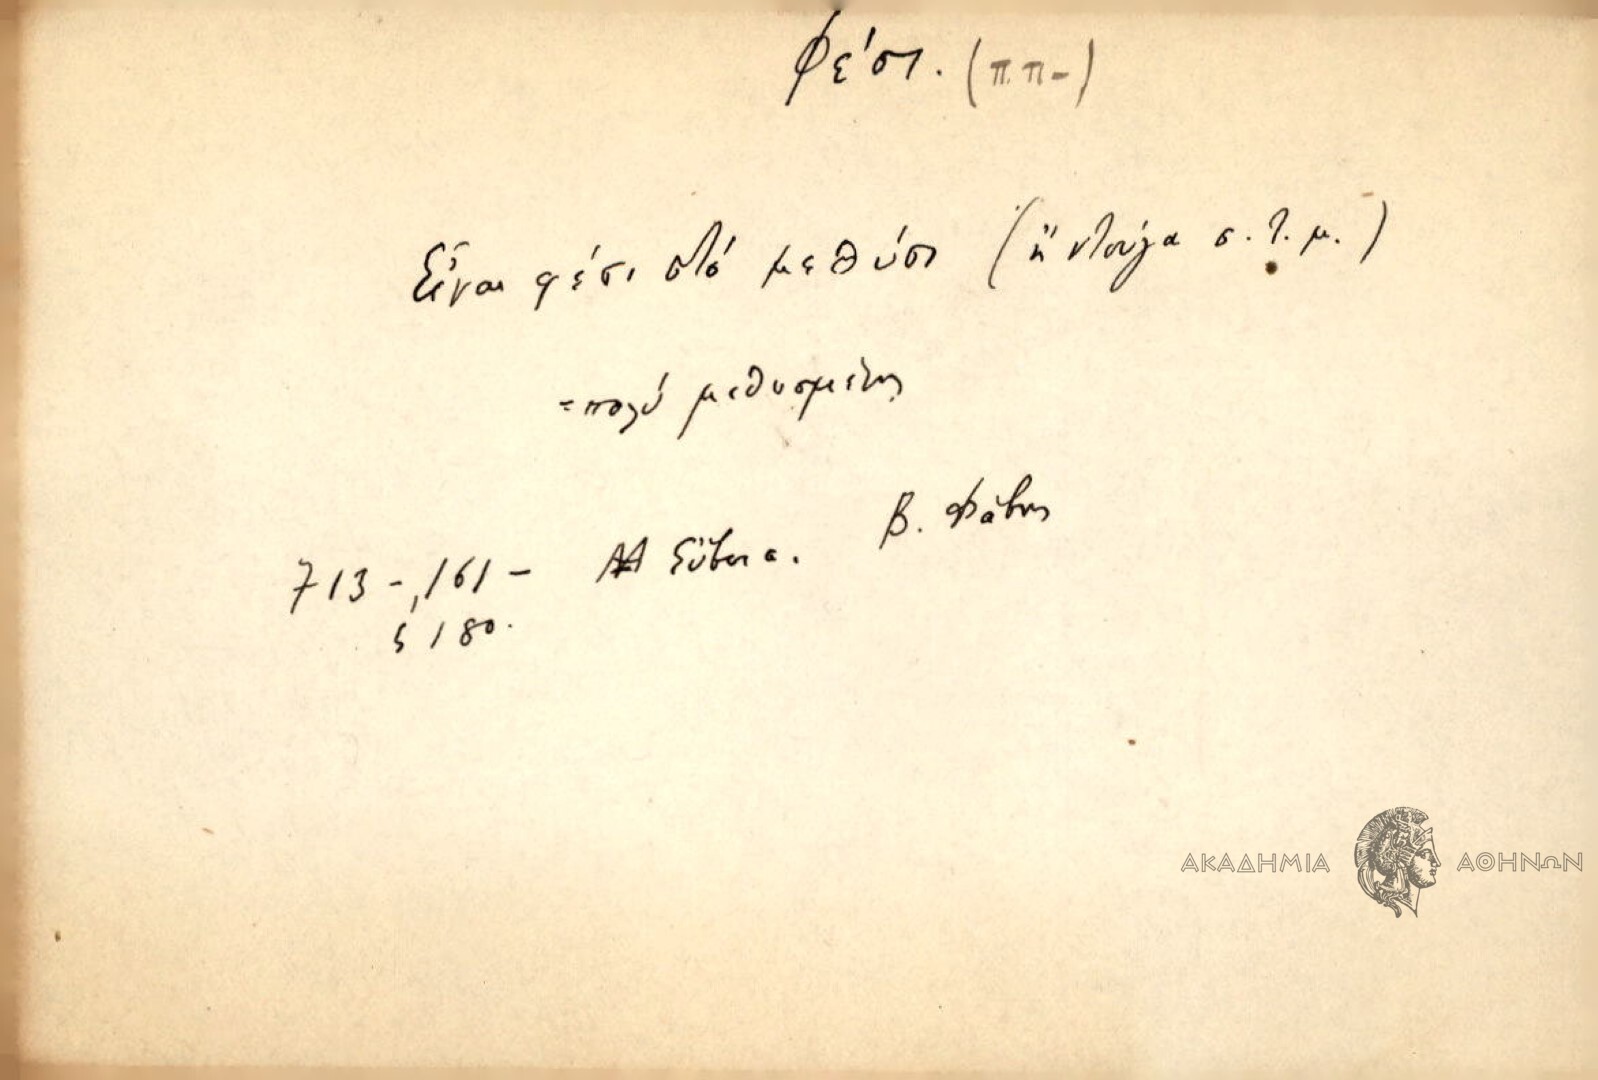 Φέσι. (π.π-)
Εἶναι φέσι στό μεθύσι (ἤ ντούγα σ. τ. μ.)
=πολύ μεθυσμένος
Β. Φάβης
713-, 161- Εὔβοια.
5 180.
ΑΚΑΔΗΜΙΑ ΑΘΗΝΩΝ